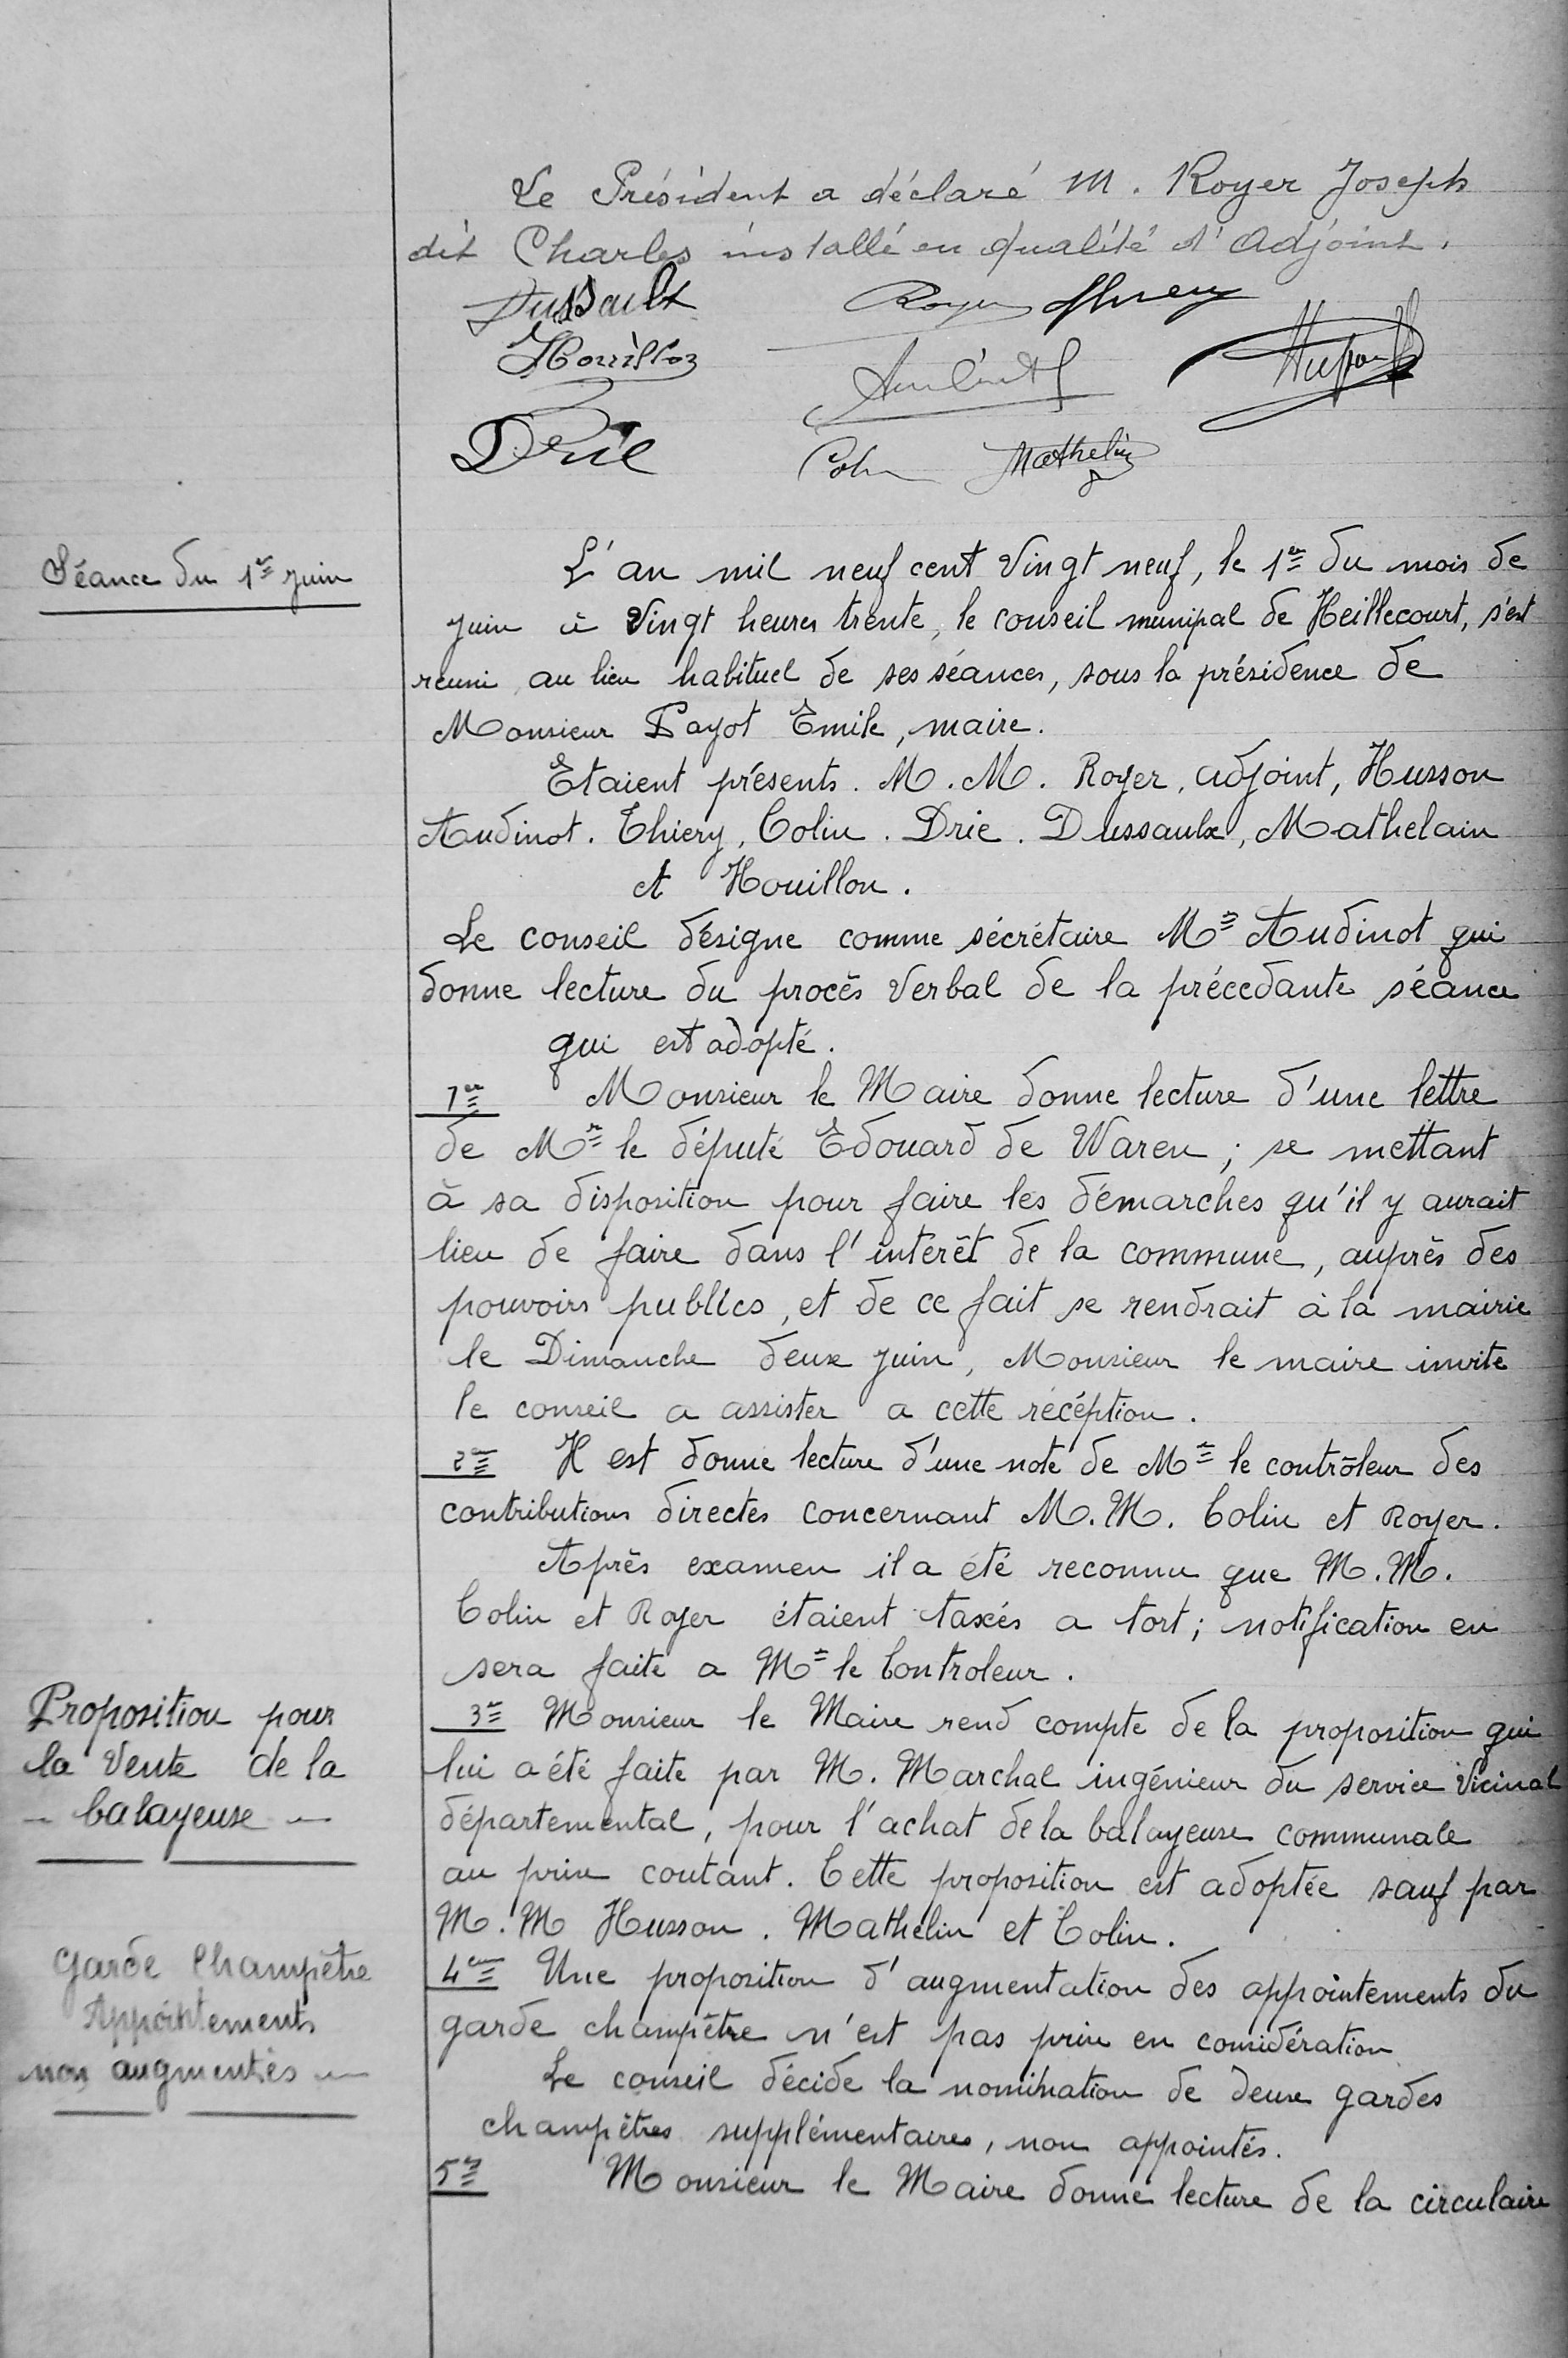 Le Président a déclaré M. Royer Joseph
dit Charles installé en qualité d'Adjoint.
Dussault Royer Thiery
Houillon
Drie Colin Mathelin
Séance du 1er juin
L'an mil neuf cent Vingt neuf, le 1er du mois de
juin à Vingt heures trente, le conseil munipal de Heillecourt, s'est
réuni au lieu habituel de ses séances, sous la présidence de
Monsieur Payot Emile, maire.
Etaient présents. M.M. Royer, adjoint, Husson
Audinot. Thiery, Colin. Drie. Dussaulx, Mathelain
et Houillon.
Le conseil désigne comme sécrétaire Mr Audinot qui
donne lecture du procès Verbal de la précedante séance
qui est adopté.
1er Monsieur le Maire donne lecture d'une lettre
de Mr le député Edouard de Waren ; se mettant
à sa disposition pour faire les démarches qu'il y aurait
lieu de faire dans l'intérêt de la commune, auprès des
pouvoirs publics, et de ce fait se rendrait à la mairie
le Dimanche deux juin, Monsieur le maire invite
le conseil a assister a cette récéption.
2em Il est donne lecture d'une note de Mr le contrôleur des
contributions directes concernant M.M. Colin et Royer.
Après examen il a été reconnu que M.M.
Colin et Royer étaient taxés a tort ; notification en
sera faite a Mr le Controleur.
Proposition pour
la Vente de la
- balayeuse -
3e Monsieur le Maire rend compte de la proposition qui
lui a été faite par M. Marchal ingénieur du service Vicinal
départemental, pour l'achat de la balayeuse communale
au prix coutant. Cette proposition est adoptée sauf par
M.M Husson. Mathelin et Colin.
Garde Champêtre
Appointements
non augmentés -
4em Une proposition d'augmentation des appointements du
garde champêtre n'est pas prise en considération
Le conseil décide la nomination de deux gardes
champêtres supplémentaires, non appointés.
5em Monsieur le Maire donne lecture de la circulaire